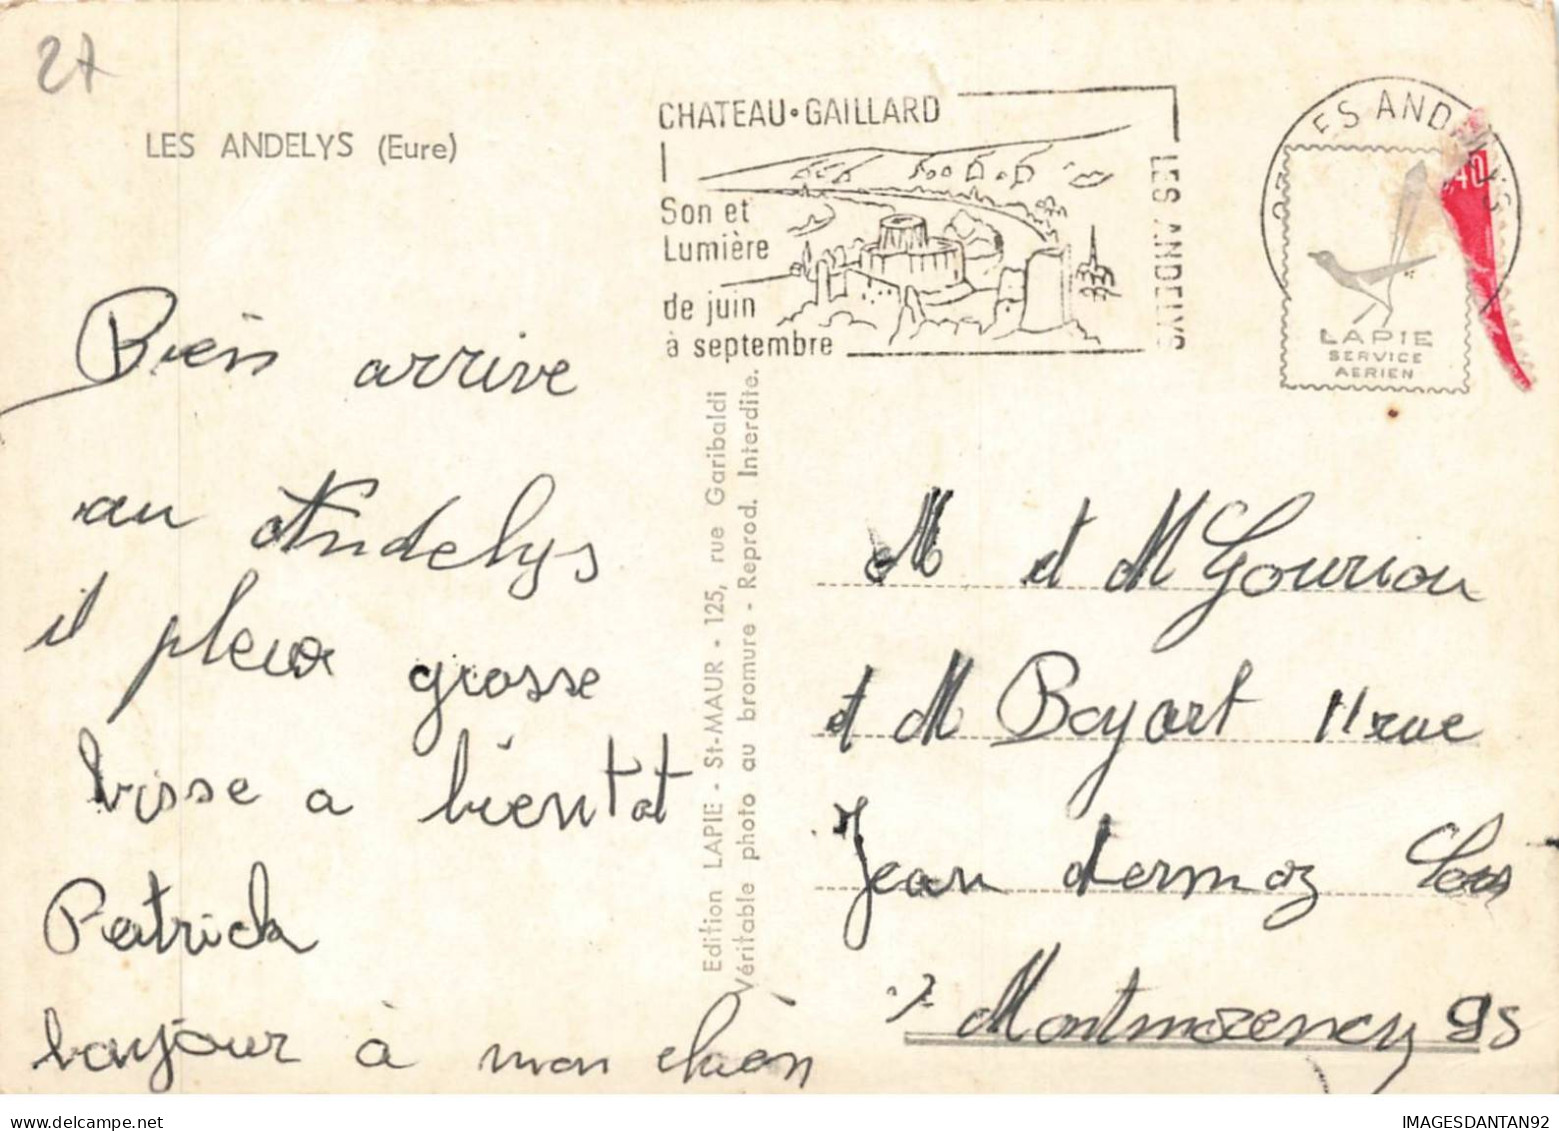 27
LES ANDELYS (Eure)
CHATEAU • GAILLARD
Son et
Lumière
de juin
à septembre
LES ANDELYS
ES ANDELYS
40
LAPIE
SERVICE
AERIEN
Edition LAPIE - St-MAUR - 125, rue Garibaldi
Véritable photo au bromure - Reprod. Interdite.
Bien arrive
au Andelys
il pleur grosse
bisse a bientat
Patrick
bonjour à mon chien
M et M Gourion
et M Boyart 11 rue
Jean dermoz
Montmorency 95
IMAGESDANTAN92